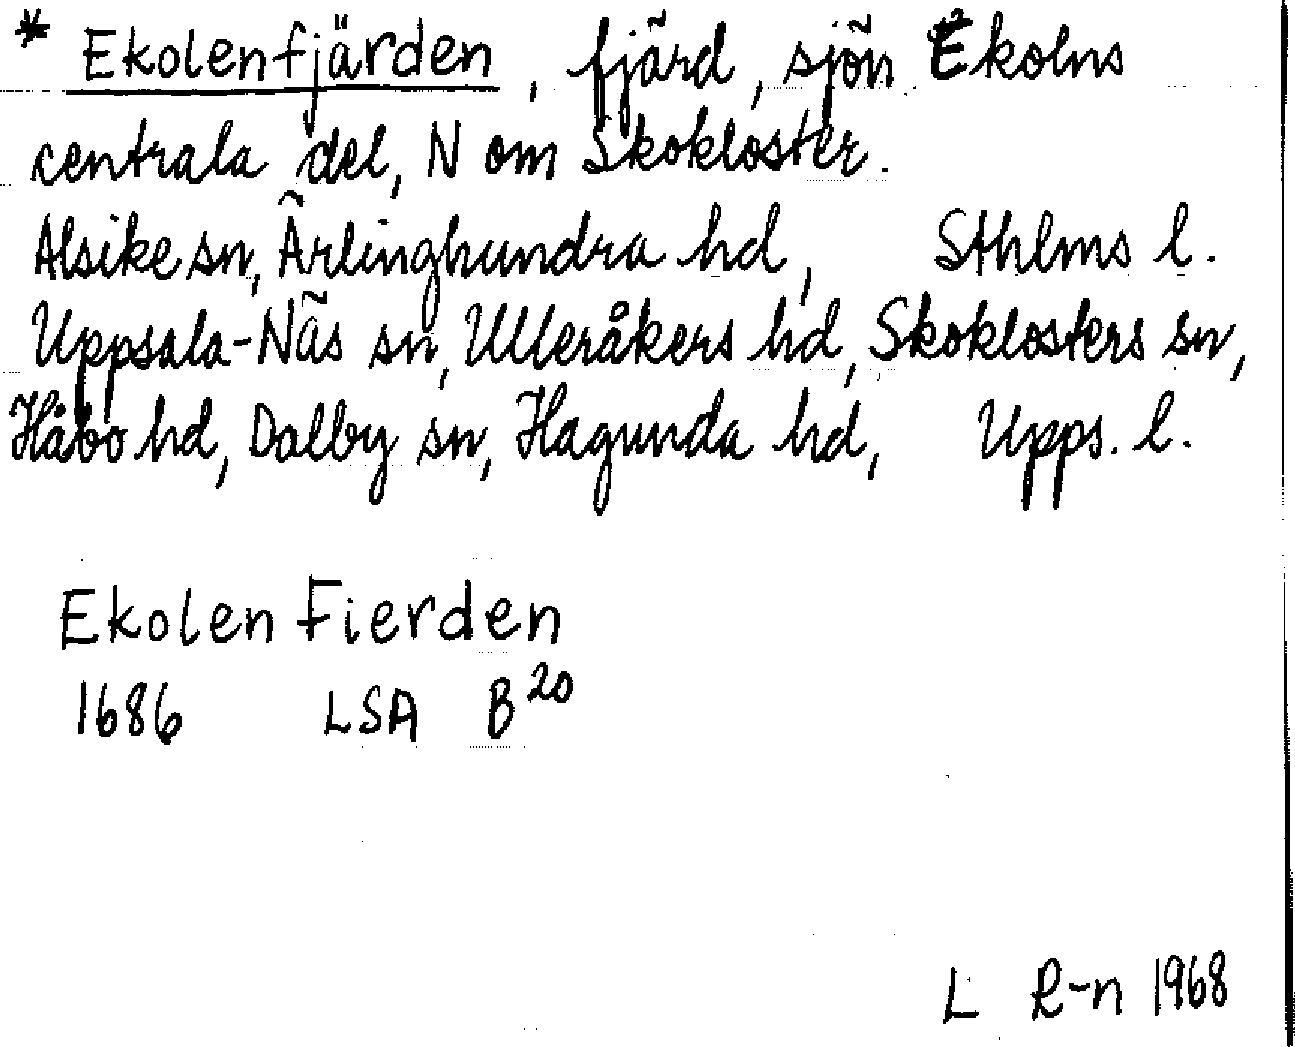 * Ekolenfjärden, fjärd, sjön Ekolns
centrala del, N om Skokloster.
Alsike sn, Ärlinghundra hd, Sthlms l.
Uppsala-Näs sn, Ulleråkers hd, Skoklosters sn,
Håbo hd, Dalby sn, Hagunda hd, Upps. l.
Ekolen Fierden
1686 LSA B 20
L R-n 1968